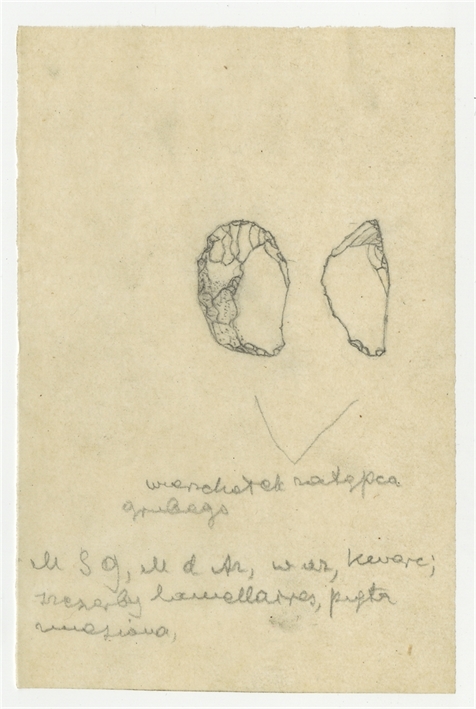 wierzchołek zatępca
grubego
M S g, M d Ar, w az, kwarc;
szczerby lamellaires, pięta
zniesiona,